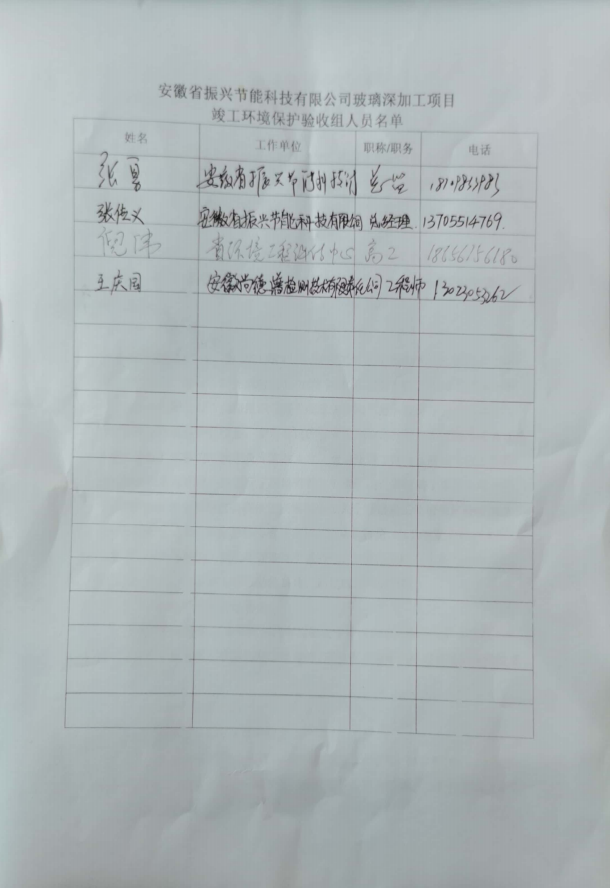 安徽省振兴节能科技有限公司玻璃深加工项目
竣工环境保护验收组人员名单
姓名 工作单位 职称/职务 电话
张勇 安徽省振兴节能科技
张佐义 安徽省振兴节能科技有限公司 总经理 13705514769
倪伟 省环境工程评估中心 高工 18656156180
王庆国 安徽尚德谱检测技术有限责任公司 工程师 13023053262